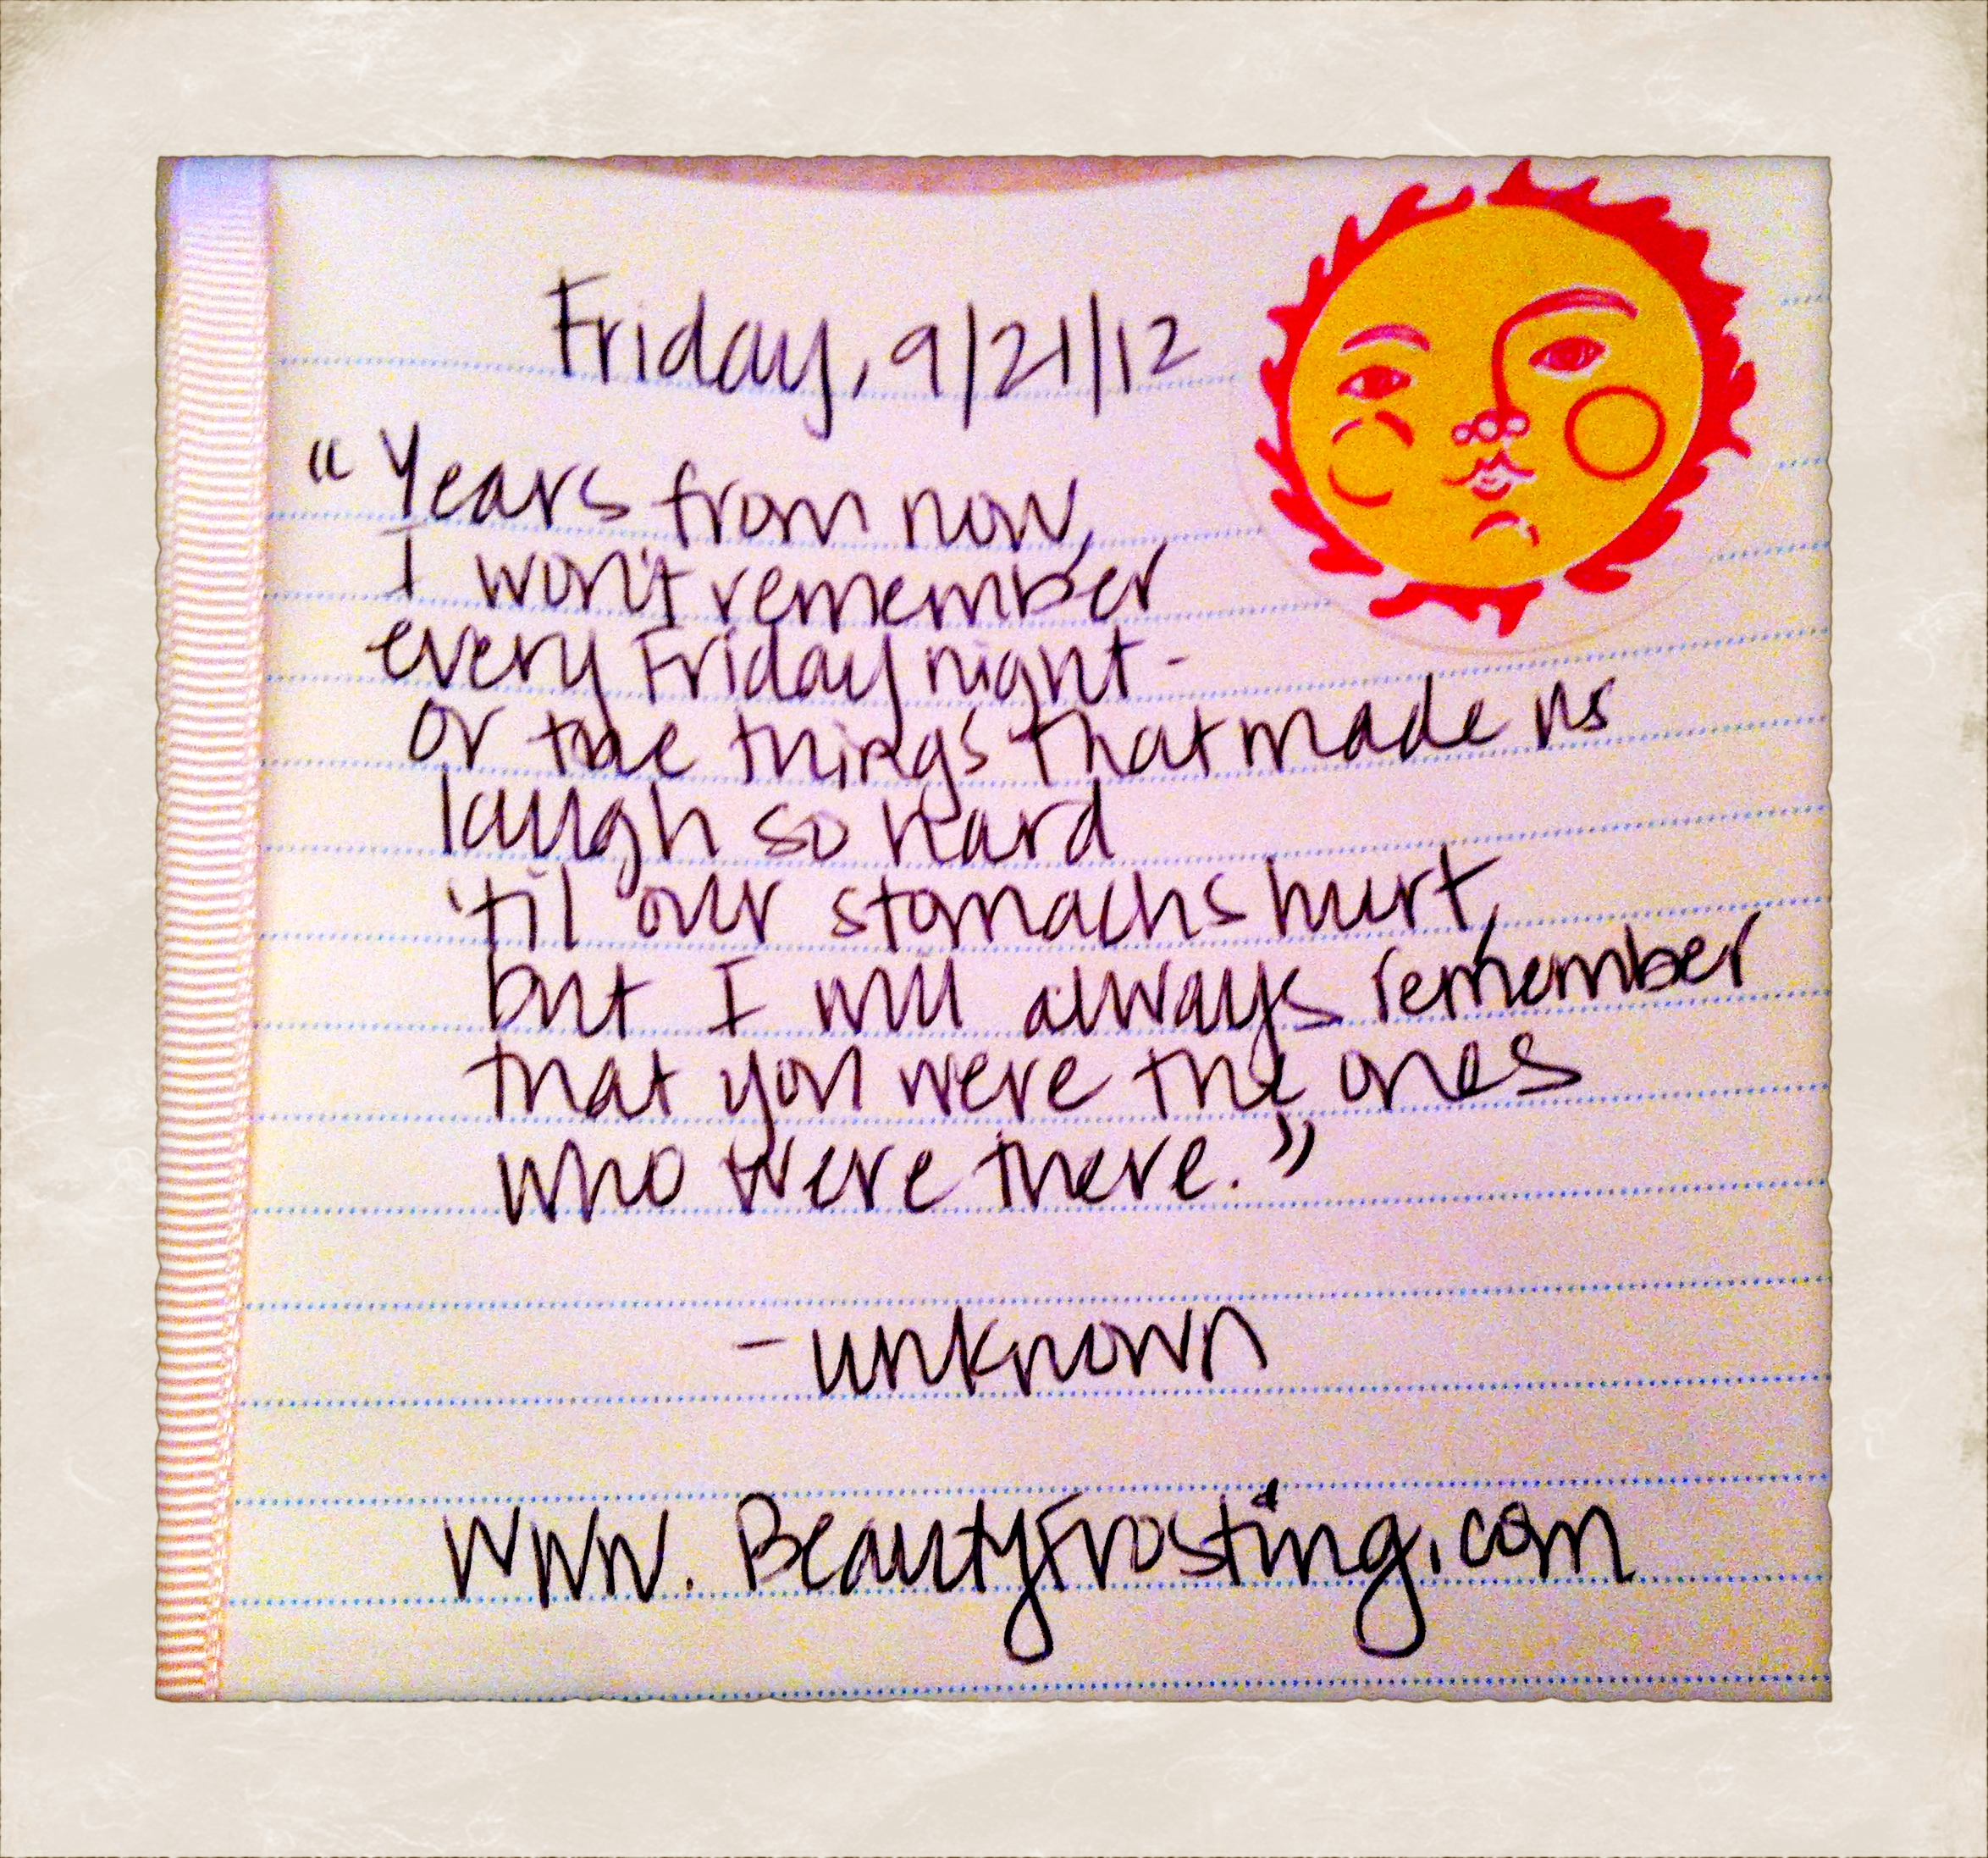 Friday, 9/21/12
"Years from now,
I won't remember
every Friday night -
or the things that made us
laugh so hard
'til our stomachs hurt,
but I will always remember
that you were the ones
who were there."
- unknown
www.BeautyFrosting.com